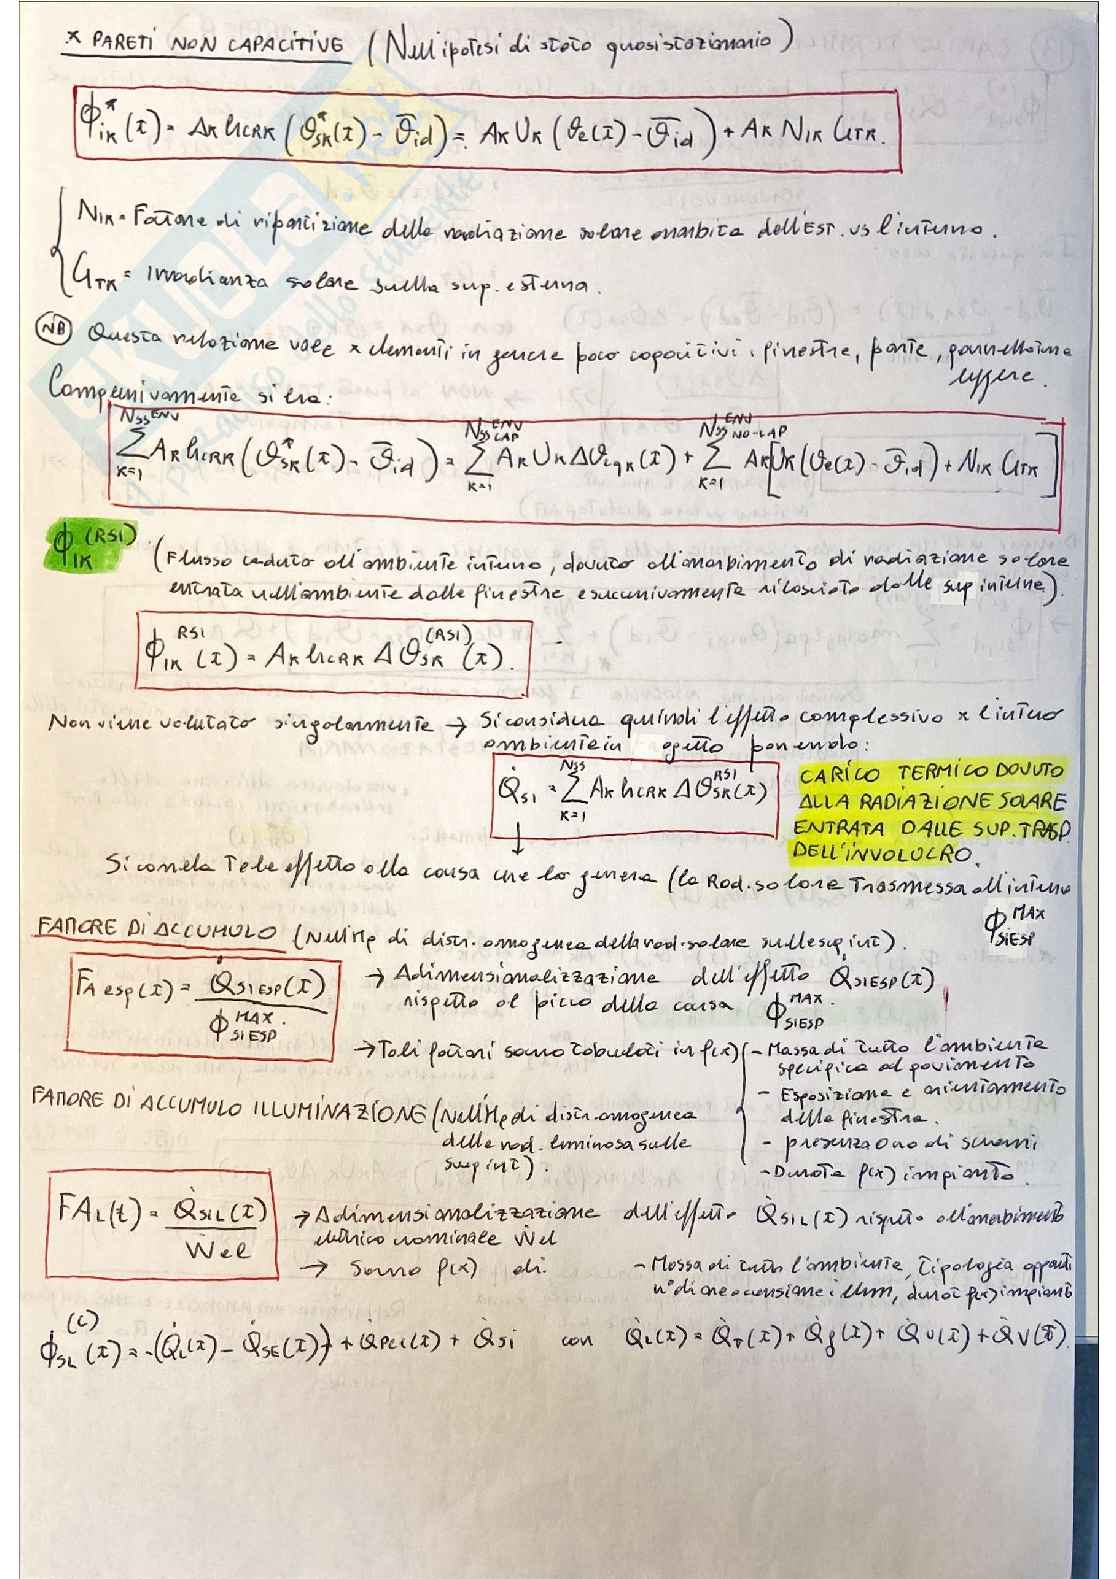 x PARETI NON CAPACITIVE (Nell'ipotesi di stato quasistazionario)
ϕ*iK(τ) = AK hCRK (θ*SK(τ) - θ̄id) = AK UK (θe(τ) - θ̄id) + AK NIK GTK.
NIK = Fattore di ripartizione della radiazione solare assorbita dall'EST. vs l'interno.
GTK = Irradianza solare sulla sup. esterna.
NB Questa relazione vale x elementi in genere poco capacitivi: finestre, porte, pannellature
leggere.
Complessivamente si ha:
∑K=1^NSS^ENV AK hCRK (θ*SK(τ) - θ̄id) = ∑K=1^NSS^ENV CAP AK UK Δθeqk(τ) + ∑K=1^NSS^ENV NO-CAP AK [UK (θe(τ) - θ̄id) + NIK GTK]
ϕIK^(RSI). (Flusso ceduto all'ambiente interno, dovuto all'assorbimento di radiazione solare
entrata nell'ambiente dalle finestre e successivamente rilasciato dalle sup interne).
ϕIK^RSI(τ) = AK hCRK Δθ^(RSI)SK(τ).
Non viene valutato singolarmente → Si considera quindi l'effetto complessivo x l'intero
ambiente in ogetto ponendo:
Q̇SI = ∑K=1^NSS AK hCRK Δθ^RSI SK(τ)
CARICO TERMICO DOVUTO
ALLA RADIAZIONE SOLARE
ENTRATA DALLE SUP. TRASP.
DELL'INVOLUCRO.
Si correla Tale effetto alla causa che lo genera (la Rad. solare Trasmessa all'interno
ϕ^MAX SIESP
FATTORE DI ACCUMULO (Nell'Hp di distr. omogenea della rad. solare sulle sup int).
FA esp(τ) = Q̇SIESP(τ) / ϕ^MAX. SIESP
→ Adimensionalizzazione dell'effetto Q̇SIESP(τ)
rispetto al picco della causa ϕ^MAX. SIESP
→ Tali fattori sono tabulati in f(x)
- Massa di tutto l'ambiente
specifica al pavimento
- Esposizione e orientamento
della finestra.
- presenza o no di schermi
- Durata f(x) impianto.
FATTORE DI ACCUMULO ILLUMINAZIONE (Nell'Hp di distr. omogenea
della rad. luminosa sulle
sup int).
FAL(t) = Q̇SIL(τ) / Ẇel
→ Adimensionalizzazione dell'effetto Q̇SIL(τ) rispetto all'assorbimento
elettrico nominale Ẇel
→ Sono f(x) di:
- Massa di tutto l'ambiente, tipologia apparati
n° di ore accensione illum, durat f(x) impianti
ϕSL^(C)(τ) = -(Q̇L(τ) - Q̇SE(τ)) + Q̇PCI(τ) + Q̇si con Q̇L(τ) = Q̇T(τ) + Q̇g(τ) + Q̇U(τ) + Q̇V(τ).